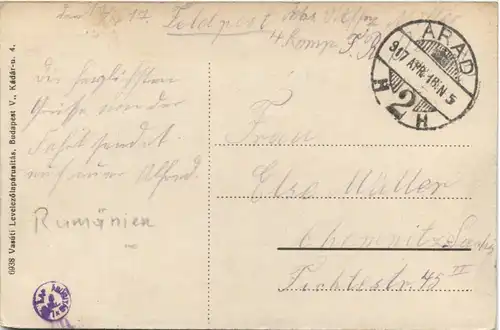 Feldpost
4 Komp. I. R.
ARAD
917 APR. 18. N 5
H 2 H
Die herzlichsten
Grüsse von der
Fahrt sendet
Alfred.
Rumänien
Frau
Else Müller
Chemnitz
Fichtestr. 45 II
6938 Vasúti Levelezőlapárusítás, Budapest V., Kádár-u. 4.